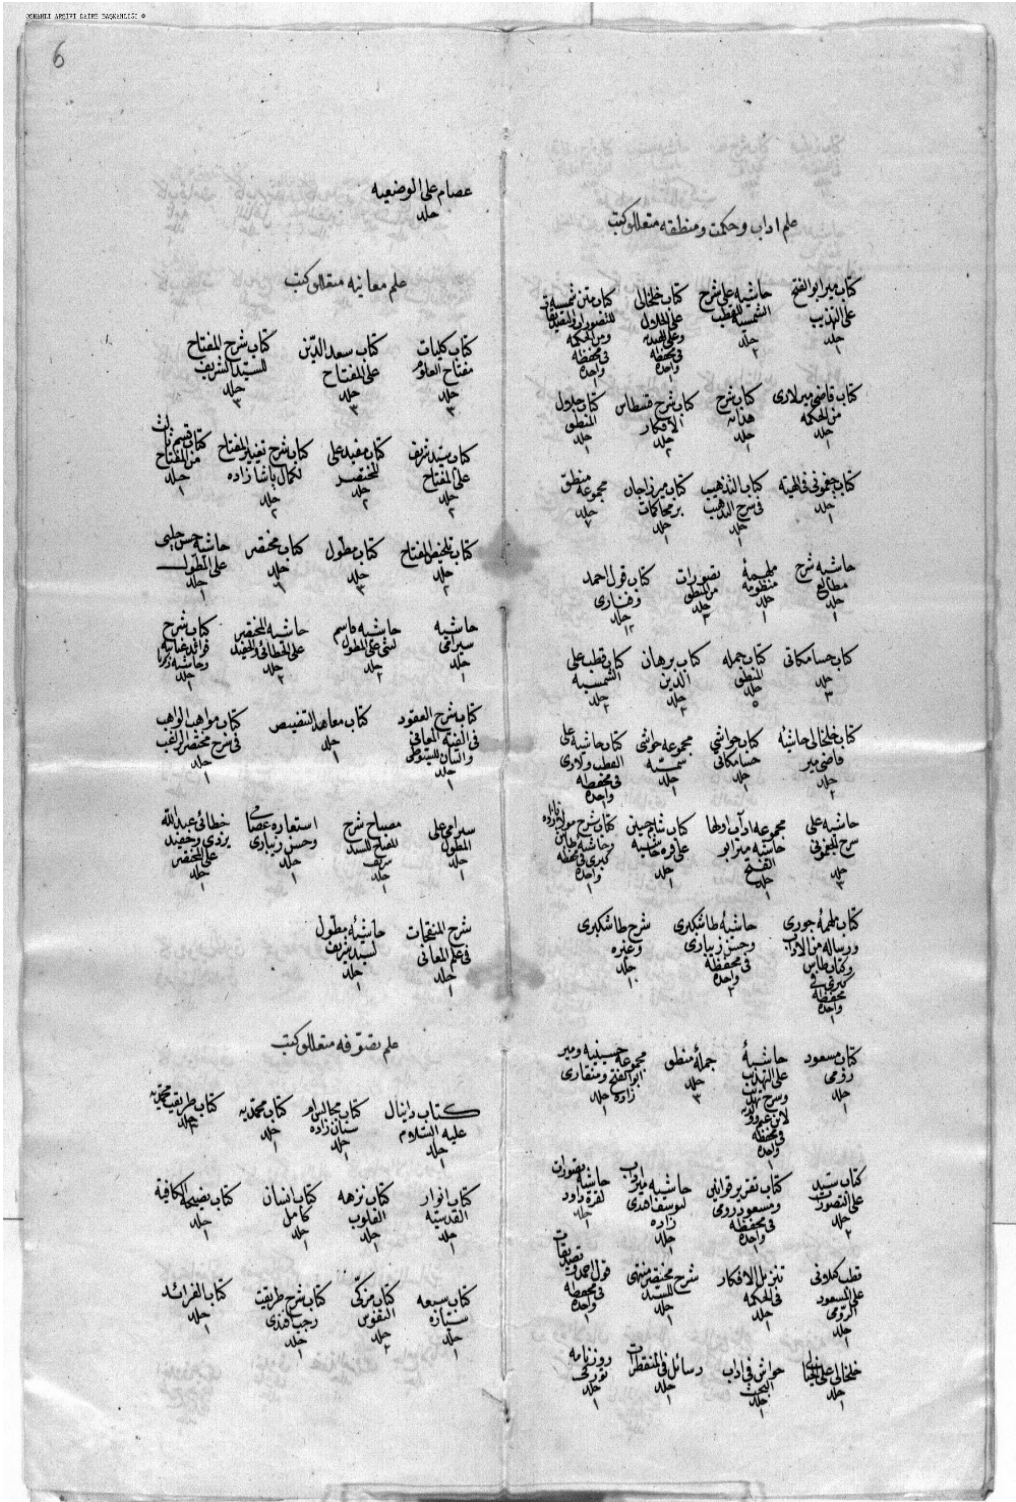 OSMANLI ARŞİVİ DAİRE BAŞKANLIĞI ©
6
علم اداب وحكمت ومنطقه متعلق كتب
كتاب ميرابوالفتح على التهذيب جلد ١
حاشيه على شرح الشمسيه للقطب جلد ٢
كتاب خلخالى على الجلال فى محفظه واحده ١
كتاب متن شمسيه ومن الحكمه فى محفظه واحده ١
كتاب قاضى ميرلارى من الحكمه جلد ١
كتاب شرح هدايه جلد ١
كتاب شرح قسطاس الافكار جلد ٢
كتاب جلال المنطق جلد ١
كتاب چغمونى فى الهيئه جلد ١
كتاب التذهيب فى شرح التهذيب جلد ١
كتاب ميرزاجان بر محاكمات جلد ١
مجموعه منطق جلد ٧
حاشيه شرح مطالع جلد ١
ملهمهٔ منظومه جلد ١
تصورات من المنطق جلد ٣
كتاب قول احمد وفنارى جلد ١٢
كتاب حسامكاتى جلد ٣
كتاب جمله المنطق جلد ٥
كتاب برهان الدين جلد ٢
كتاب قطب على الشمسيه جلد ٢
كتاب خلخالى حاشيهٔ قاضى مير جلد ٢
كتاب حواشي حسامكاتى جلد ١
مجموعه حواشى شمسيه جلد ١
كتاب حاشيه على القطب ولارى فى محفظه واحده ١
حاشيه على شرح الچغمونى جلد ٣
مجموعه اداب اولها حاشيه ميرابو الفتح جلد ١
كتاب شاه حسين على قره حاشيه جلد ١
كتاب شرح فى محفظه واحده ١
كتاب ملهمهٔ جورى ورساله من الاداب وكتاب طاش كبرى فى محفظه واحده ١
حاشيهٔ طاشكبرى وحسن زيبارى فى محفظه واحده ٢
شرح طاشكبرى وغيره جلد ١٠
كتاب مسعود رومى جلد ١
حاشيهٔ على التهذيب وشرح تهذيب فى محفظه واحده ١
جملهٔ منطق جلد ٣
مجموعه حسينيه ومير ابوالفتح ومنقارى زاده جلد ١
كتاب سيد على التصورات جلد ٢
كتاب تقرير قوانين ومسعود رومى فى محفظه واحده ١
حاشيه مير اداب ليوسف افندى زاده جلد ١
حاشيه تصورات لقره داود جلد ١
قطب كيلانى على المسعود الرومى جلد ١
تنزيل الافكار فى الحكمه جلد ١
شرح مختصر منتهى للسيد جلد ١
قول احمد وتصديقات فى محفظه واحده ١
خلخالى على الخيالى جلد ١
حواشى فى اداب البحث جلد ١
رسائل فى المنقطرات جلد ١
روزنامه نوركى جلد ١
عصام على الوضعيه جلد
علم معانيه متعلق كتب
كتاب كليات مفتاح العلوم جلد ٣
كتاب سعد الدين على المفتاح جلد ٣
كتاب شرح المفتاح للسيد الشريف جلد ٣
كتاب سيد شريف على المفتاح جلد ٢
كتاب مفيد على المختصر جلد ٢
كتاب شرح تغيير المفتاح لكمال پاشا زاده جلد ٢
كتاب قسم ثالث من المفتاح جلد ١
كتاب تلخيص المفتاح جلد ٢
كتاب مطول جلد ٣
كتاب مختصر جلد ٦
حاشيه حسن چلبى على المطول جلد ١
حاشيه سيرامى جلد ١
حاشيه قاسم ليثى على المطول جلد ٢
حاشيه المختصر على الخطائى والحفيد جلد ٢
كتاب شرح فرائد غياثيه وحاشيه زكريا جلد ١
كتاب شرح العقود فى الفية المعانى والبيان للسيوطى جلد ١
كتاب معاهد التنصيص جلد ١
كتاب مواهب الواهب فى شرح جلد ١
سيرامى على المطول جلد ١
مصباح شرح المفتاح للسيد شريف جلد ١
استعاره عصامى وحسن زيبارى جلد ١
خطائى عبدالله يزدى وحفيد على المختصر جلد ١
شرح المنقحات فى علم المعانى جلد ١
حاشيهٔ مطول لسيد شريف جلد ١
علم تصوفه متعلق كتب
كتاب دانيال عليه السلام جلد ١
كتاب مجالس سنان زاده جلد ١
كتاب محمديه جلد ١
كتاب طريقت محمديه جلد
كتاب انوار القدسيه جلد ١
كتاب نزهه القلوب جلد ١
كتاب انسان كامل جلد ١
كتاب نصيحة الكافيه جلد ١
كتاب سبعه سياره جلد ١
كتاب مزكى النفوس جلد ٢
كتاب شرح طريقت رجب افندى جلد ١
كتاب الفرائد جلد ١